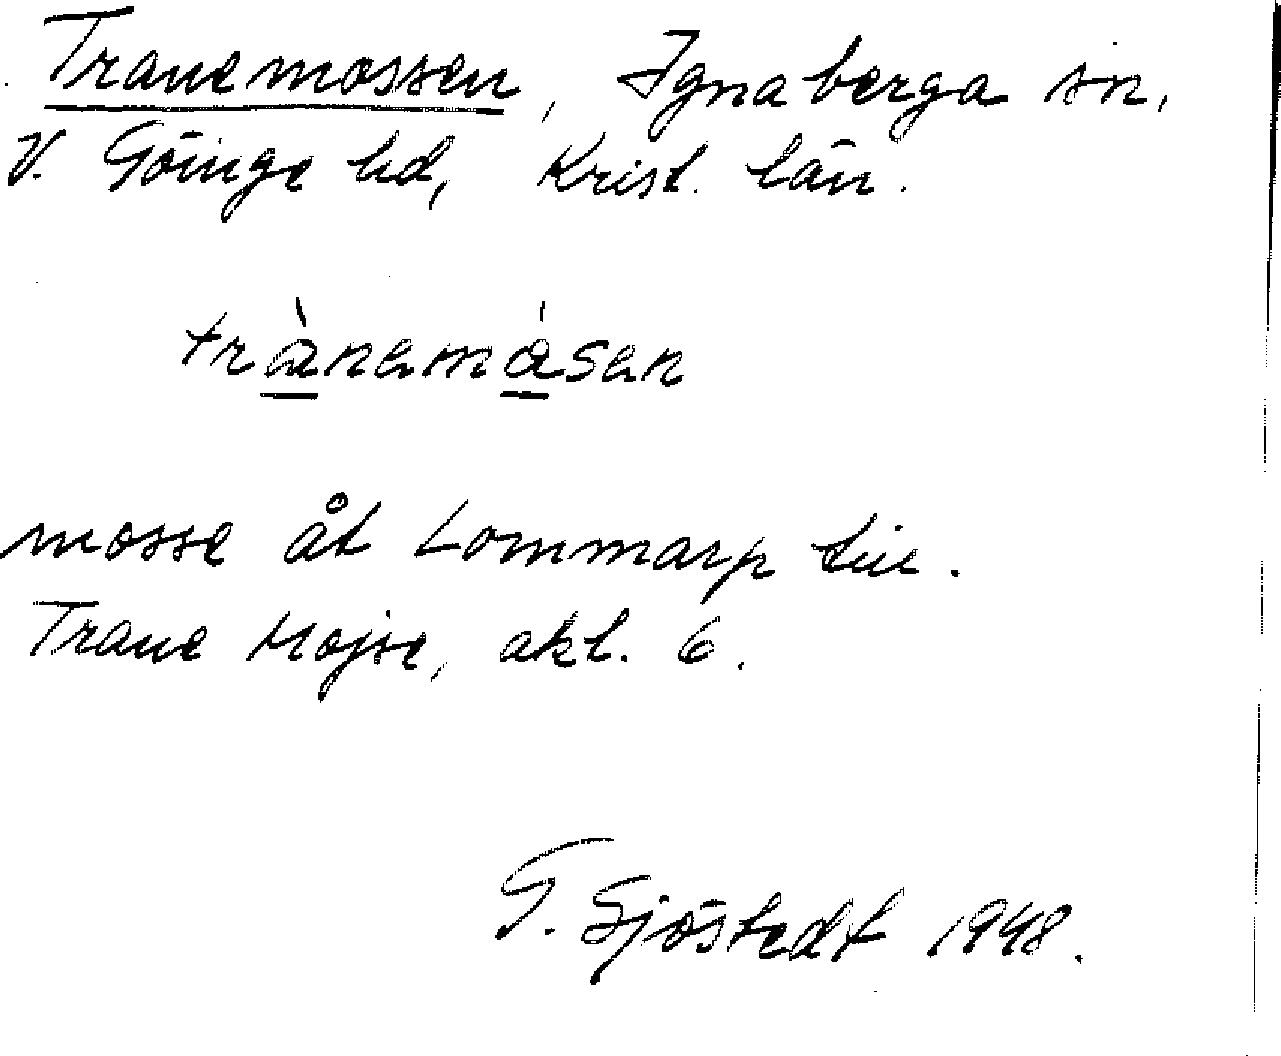 Tranemossen, Ignaberga sn,
V. Göinge hd, Krist. län.
trànemásen
mosse åt Lommarp till.
Trane Mojse, akt. 6.
G. Sjöstedt 1948.